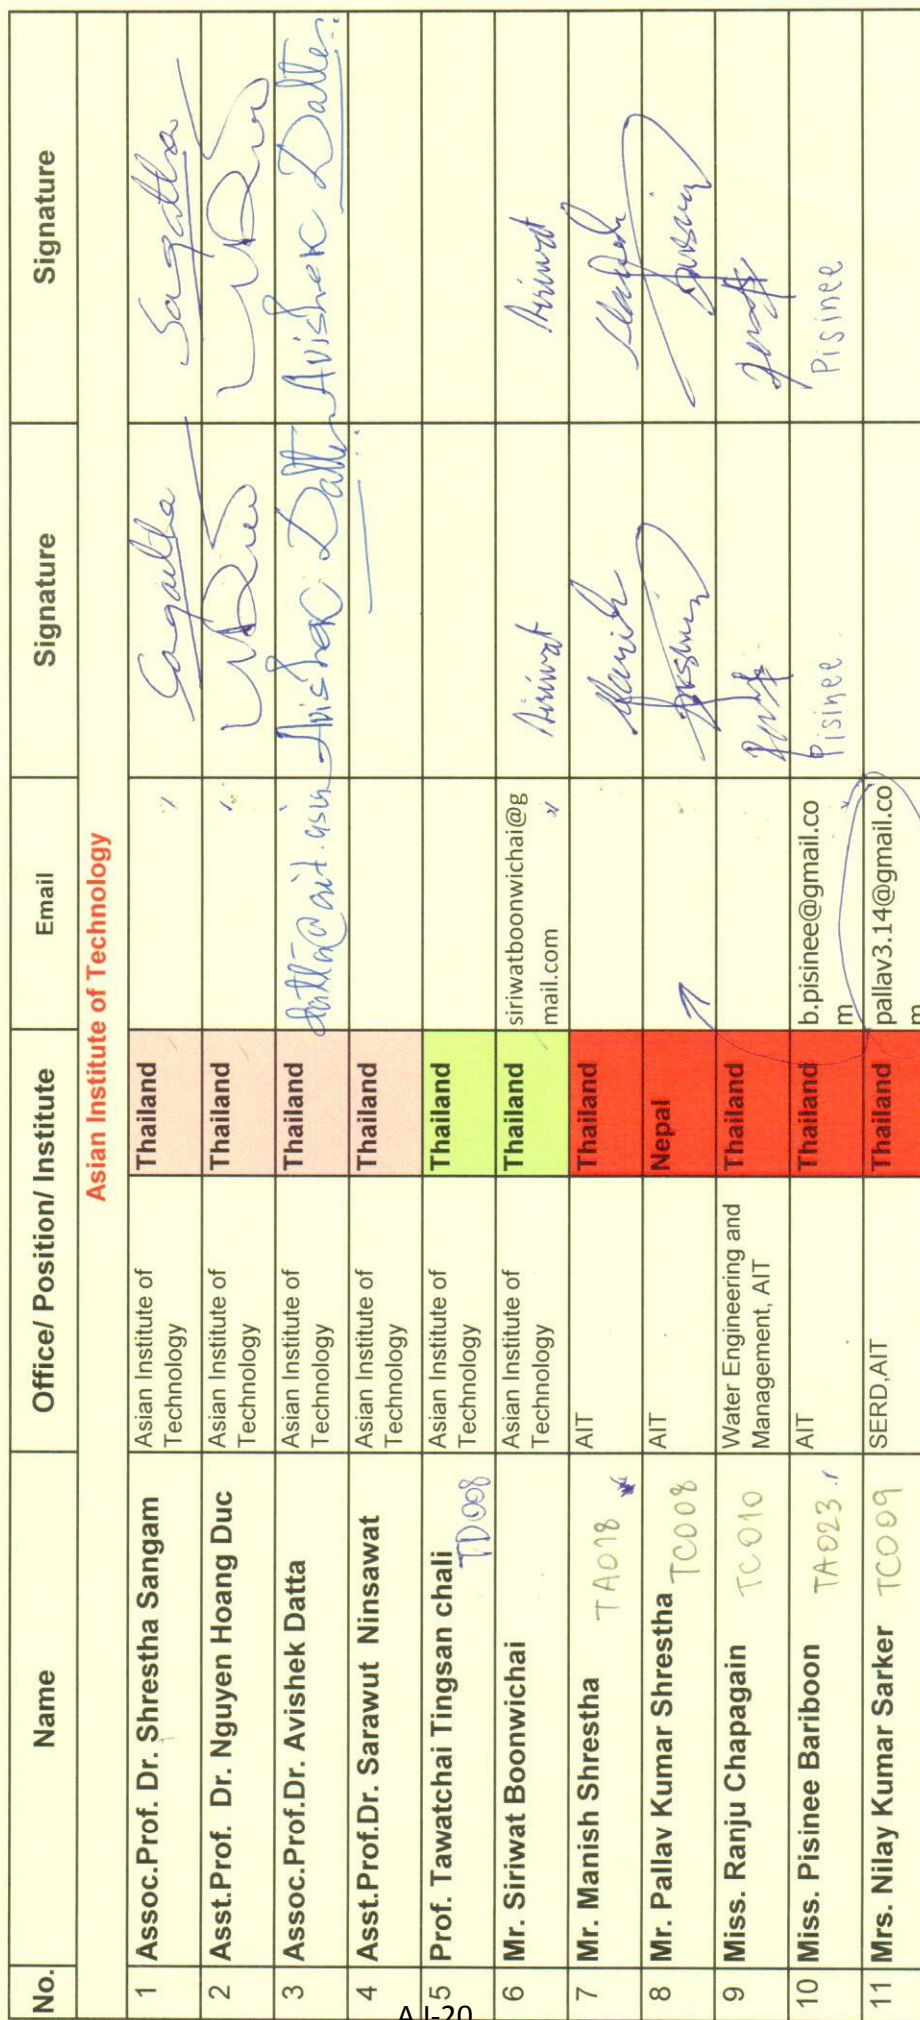 No. Name Office/ Position/ Institute Email Signature Signature
Asian Institute of Technology
1 Assoc.Prof. Dr. Shrestha Sangam Asian Institute of Technology Thailand
2 Asst.Prof. Dr. Nguyen Hoang Duc Asian Institute of Technology Thailand
3 Assoc.Prof.Dr. Avishek Datta Asian Institute of Technology Thailand datta@ait.asia Avishek Datta Avishek Datta
4 Asst.Prof.Dr. Sarawut Ninsawat Asian Institute of Technology Thailand
5 Prof. Tawatchai Tingsan chali TD008 Asian Institute of Technology Thailand
6 Mr. Siriwat Boonwichai Asian Institute of Technology Thailand siriwatboonwichai@gmail.com Siriwat Siriwat
7 Mr. Manish Shrestha TA018 AIT Thailand Manish
8 Mr. Pallav Kumar Shrestha TC008 AIT Nepal
9 Miss. Ranju Chapagain TC010 Water Engineering and Management, AIT Thailand
10 Miss. Pisinee Bariboon TA023 AIT Thailand b.pisinee@gmail.com Pisinee Pisinee
11 Mrs. Nilay Kumar Sarker TC009 SERD,AIT Thailand pallav3.14@gmail.com
A I-20